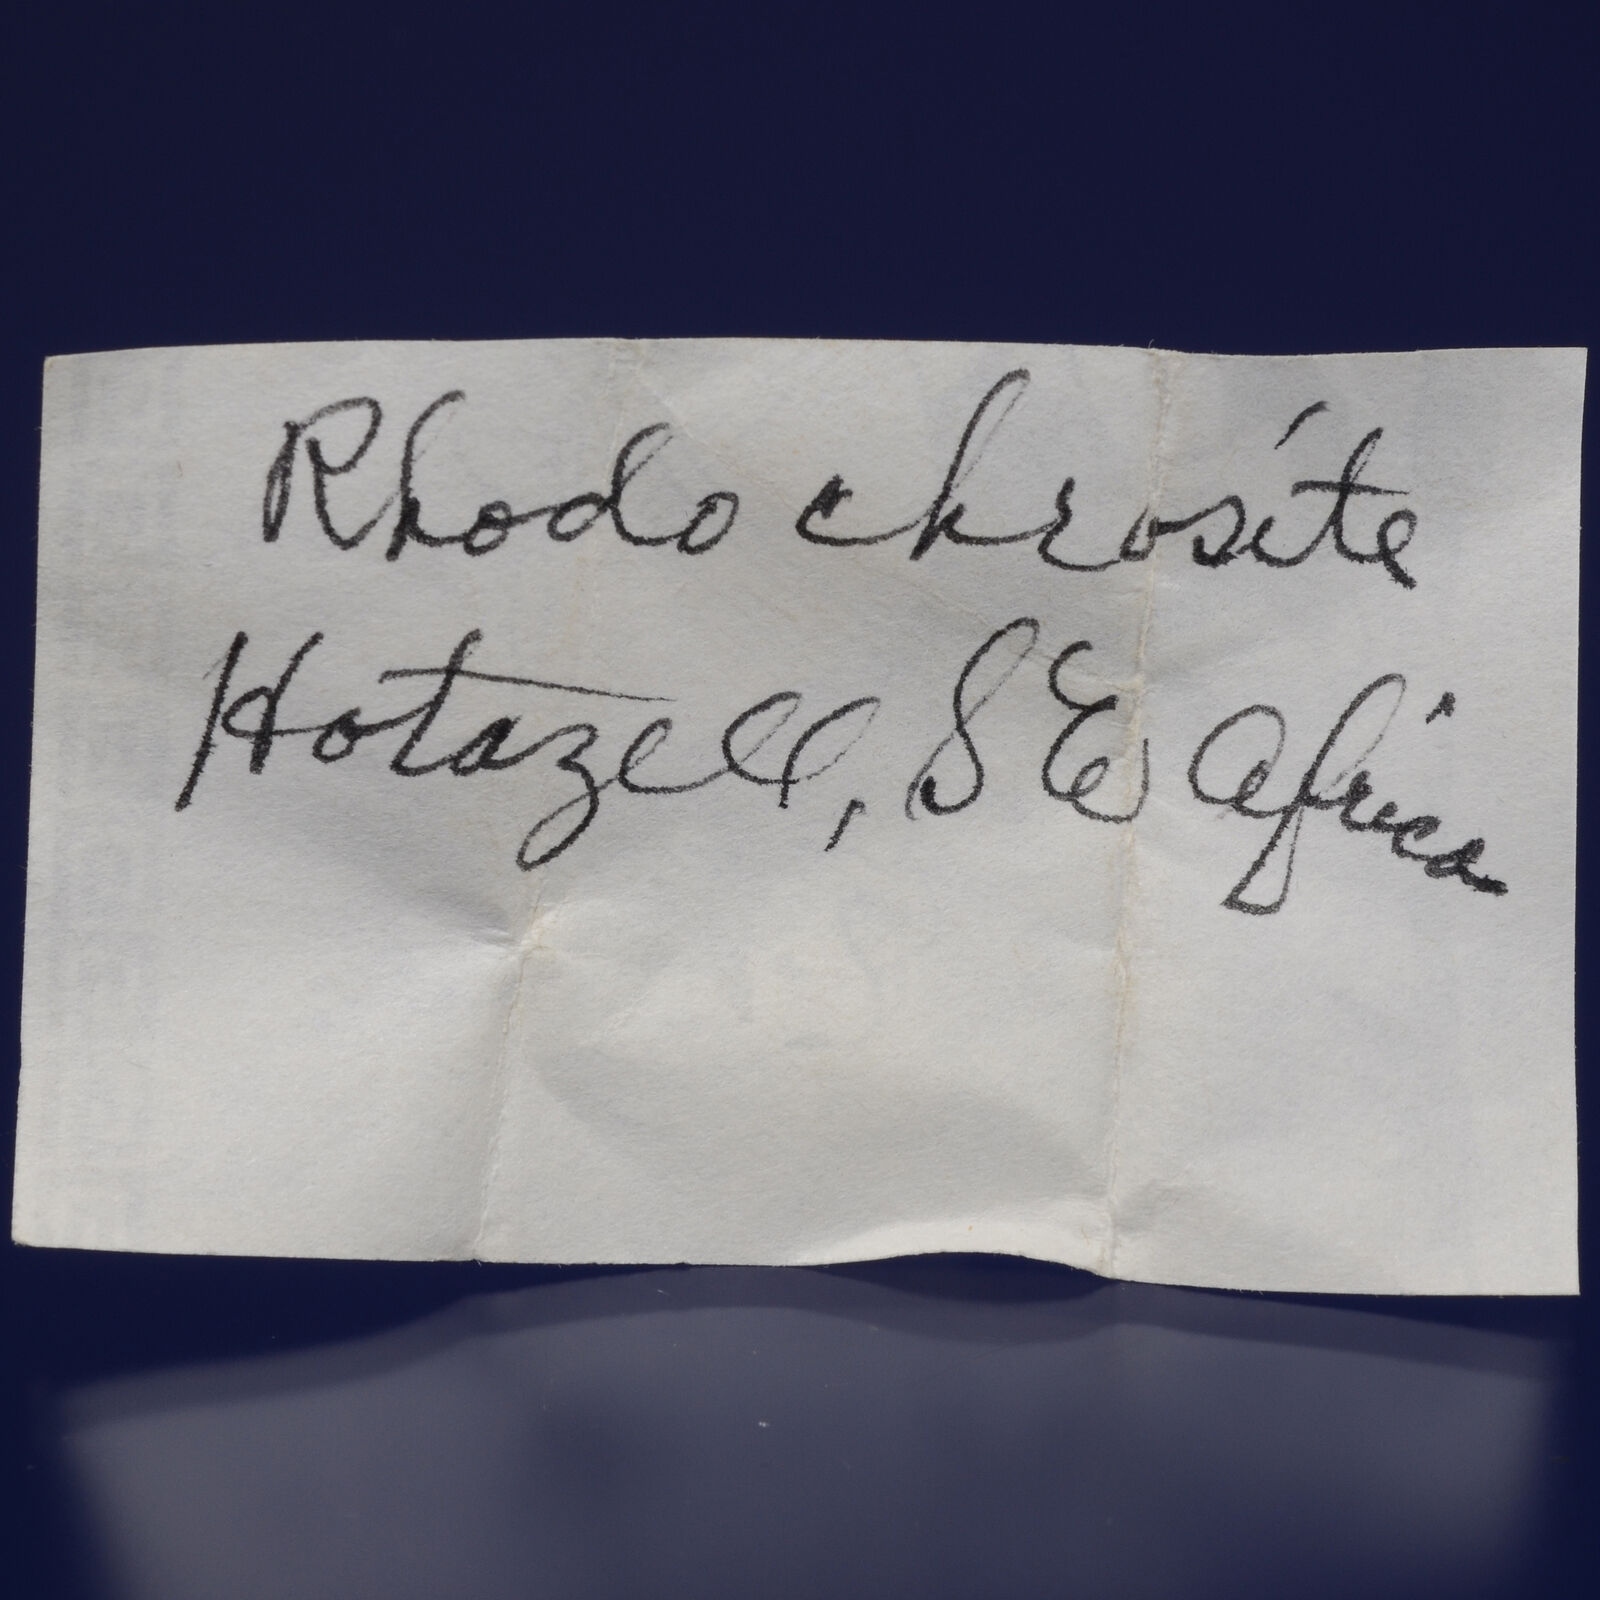 Rhodochrosite
Hotazell, S E Africa